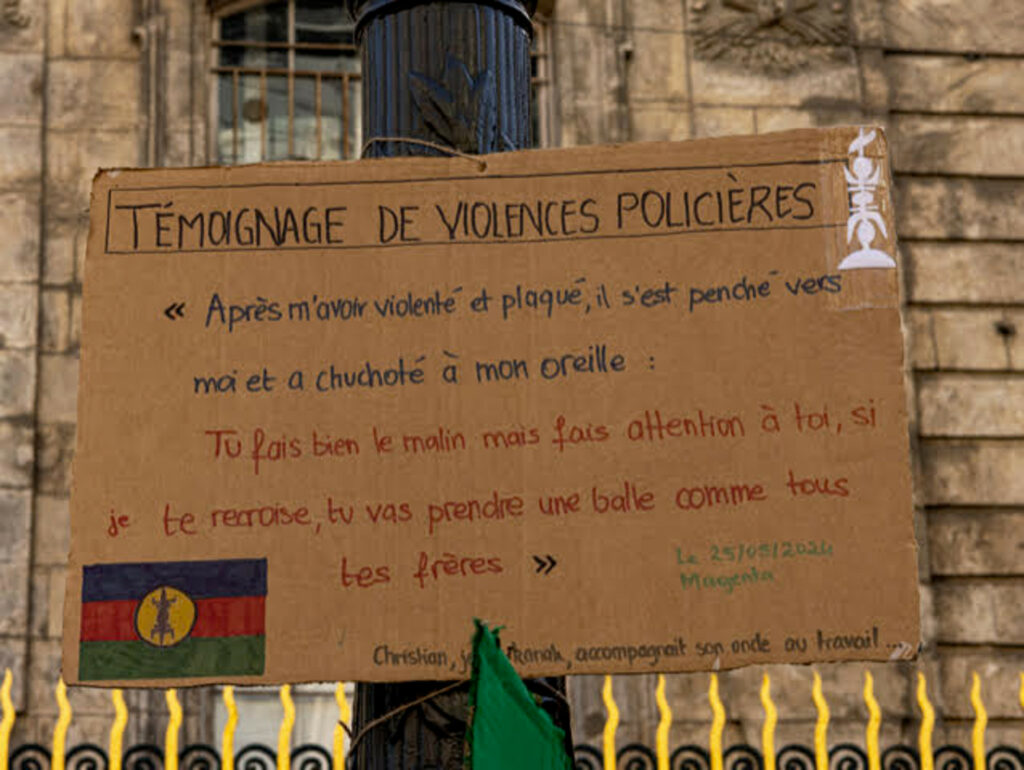 TÉMOIGNAGE DE VIOLENCES POLICIÈRES
« Après m'avoir violenté et plaqué, il s'est penché vers
moi et a chuchoté à mon oreille :
Tu fais bien le malin mais fais attention à toi, si
je te recroise, tu vas prendre une balle comme tous
tes frères »
Le 25/05/2024
Magenta
Christian, kanak, accompagnait son oncle au travail...